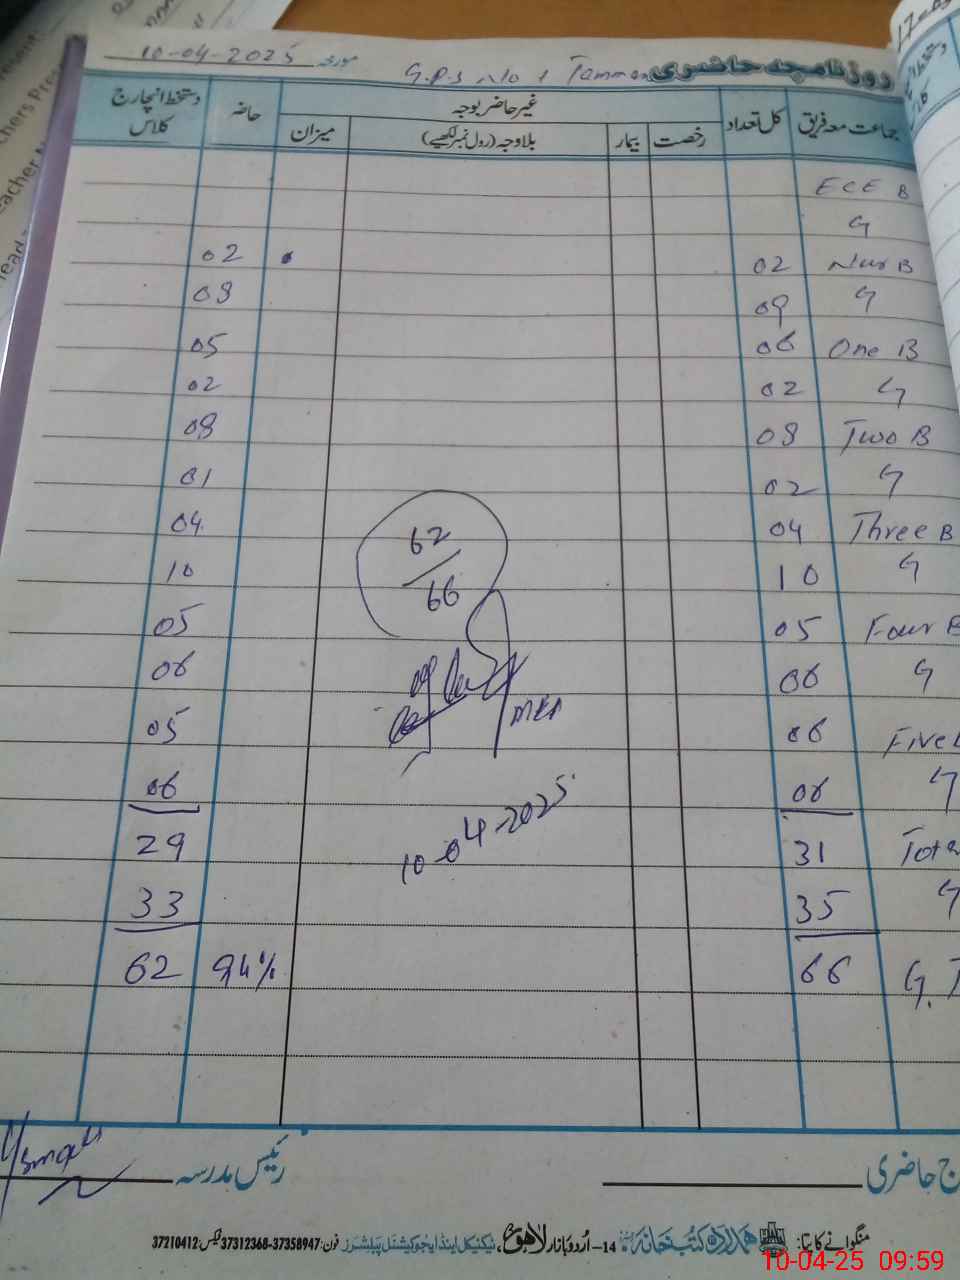 روزنامچہ حاضری G.P.S No 1 Tamman مورخہ 10-04-2025
جماعت معہ فریق کل تعداد غیر حاضر بوجہ حاضر دستخط انچارج کلاس
رخصت بیمار بلاوجہ (رول نمبر لکھیے) میزان
ECE B
G
Nur B 02 02
G 09 08
One B 06 05
G 02 02
Two B 08 08
G 02 01
Three B 04 04
G 10 10
62
66
Four B 05 05
G 06 06
Five 06 05
G 06 06
10-04-2025
Tota 31 29
G 35 33
G.T 66 94% 62
ج حاضری رئیس مدرسہ
منگوانے کا پتا: ہمدرد کتب خانہ 14-اُردو بازار لاہور، ٹیکنیکل اینڈ ایجوکیشنل پبلیشرز فون: 37358947-37312368 فیکس: 37210412
10-04-25 09:59